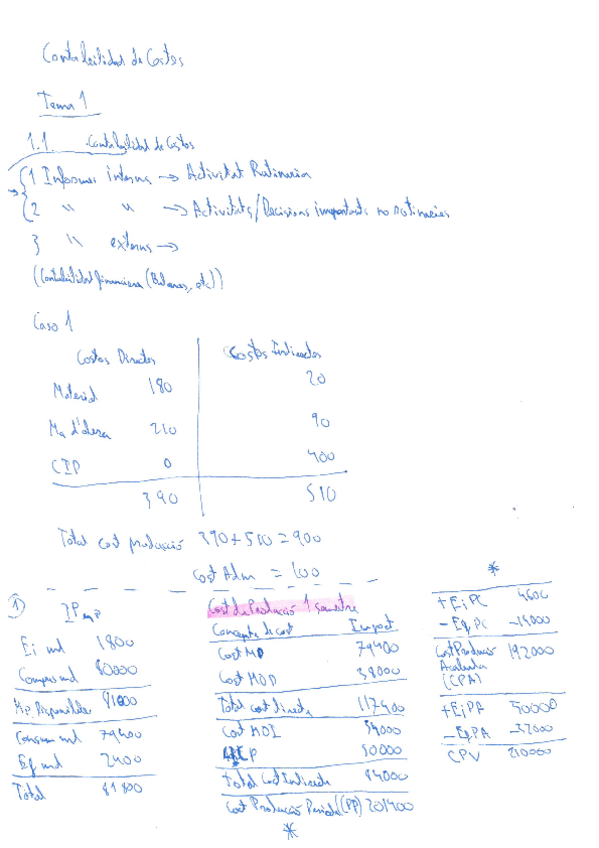 Contabilidad de Costes
Tema 1
1.1. Contabilidad de Costos
1 Informes interns → Activitat Rutinaria
2 " " → Activitats/Decisions importants no rutinaries
3 " externs →
((Contabilidad financiera (Balanços, etc))
Caso 1
Costos Directes Costos Indirectes
Material 180 20
Ma d'obra 210 90
CIP 0 400
390 510
Total cost producció 390+510=900
Cost Adm = 100
1) IP mp
Ei md 1800
Compres md 80000
Mp Disponibles 81800
Consum md 79400
Ef md 2400
Total 81800
Cost de Producció 1 semestre
Concepte de cost Import
Cost MD 79400
Cost MOD 38000
Total cost directe 117400
Cost MOI 34000
CIP 50000
Total Cost Indirecte 84000
Cost Producció Periode (CPP) 201400
*
*
+EiPC 4600
-EfPC -14000
Cost Producció Acabada 192000
(CPA)
+EiPA 50000
-EfPA -32000
CPV 210000